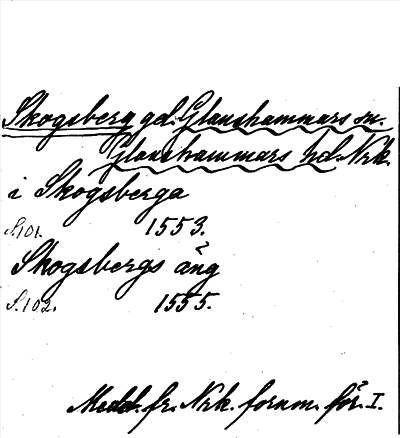 Skogsberg gd. Glanshammars sn.
Glanshammars hd. Nrk.
i Skogsberga
S.101. 1553.
Skogsbergs äng
S.102. 1555.
Medd. fr. Nrk. fornm. för. I.